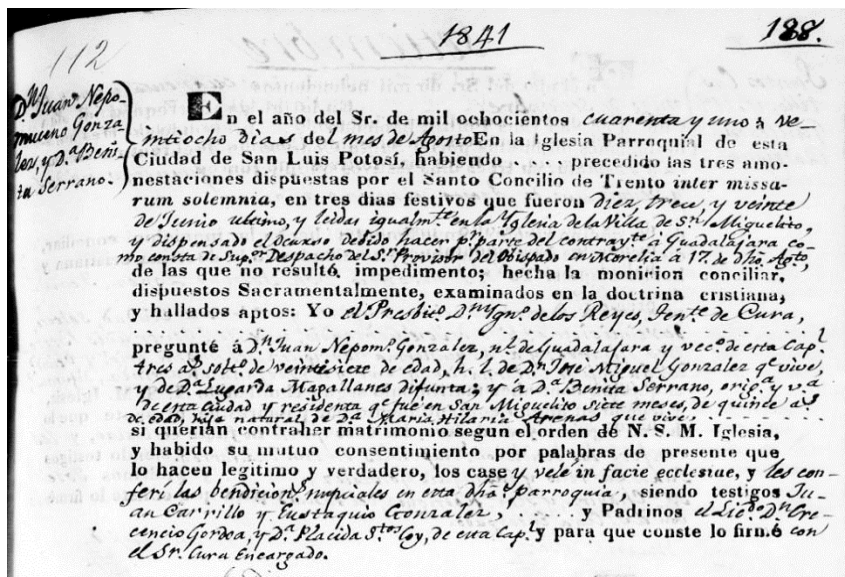 1841
188.
112
Dn Juan Nepo-
muceno Gonza-
lez, y Da Beni-
ta Serrano.
En el año del Sr. de mil ochocientos cuarenta y uno á ve-
intiocho dias del mes de Agosto En la Iglesia Parroquial de esta
Ciudad de San Luis Potosí, habiendo .... precedido las tres amo-
nestaciones dispuestas por el Santo Concilio de Trento inter missa-
rum solemnia, en tres dias festivos que fueron diez, trece y veinte
de Junio ultimo, y leidas igualmte en la Yglesia de la Villa de Sn Miguelito,
y dispensado el ocurso debido hacer pr parte del contrayte á Guadalajara co-
mo consta de Supor Despacho del Sr Provisor del Obispado en Morelia á 17. de dho. Agto,
de las que no resultó impedimento; hecha la monicion conciliar,
dispuestos Sacramentalmente, examinados en la doctrina cristiana,
y hallados aptos: Yo el Presbito Dn Ygno de los Reyes, Tente de Cura,
pregunté á Dn Juan Nepomo González, nl de Guadalajara y veco de esta Capl
tres as. solto de veintisiete de edad, h. l. de Dn José Miguel Gonzalez qe vive,
y de Da Lugarda Magallanes difunta; y á Da Benita Serrano, origa y va
de esta Ciudad y residenta qe fué en San Miguelito siete meses, de quince as
de edad, hija natural de Da Maria Hilaria Arenas que vive
si querian contraher matrimonio segun el orden de N. S. M. Iglesia,
y habido su mutuo consentimiento por palabras de presente que
lo hacen legitimo y verdadero, los case y vele in facie ecclesiae, y les con-
ferí las bendiciones nupciales en esta dha parroquia, siendo testigos Ju-
an Carrillo y Eustaquio Gonzalez, y Padrinos el Licdo Dn Cre-
cencio Gordoa, y Da Placida Stos Coy, de esta Capl y para que conste lo firmé con
el Sr. Cura Encargado.